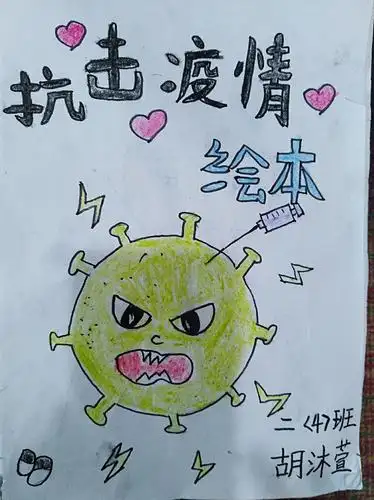 抗击疫情
绘本
二〈4〉班
胡沐萱